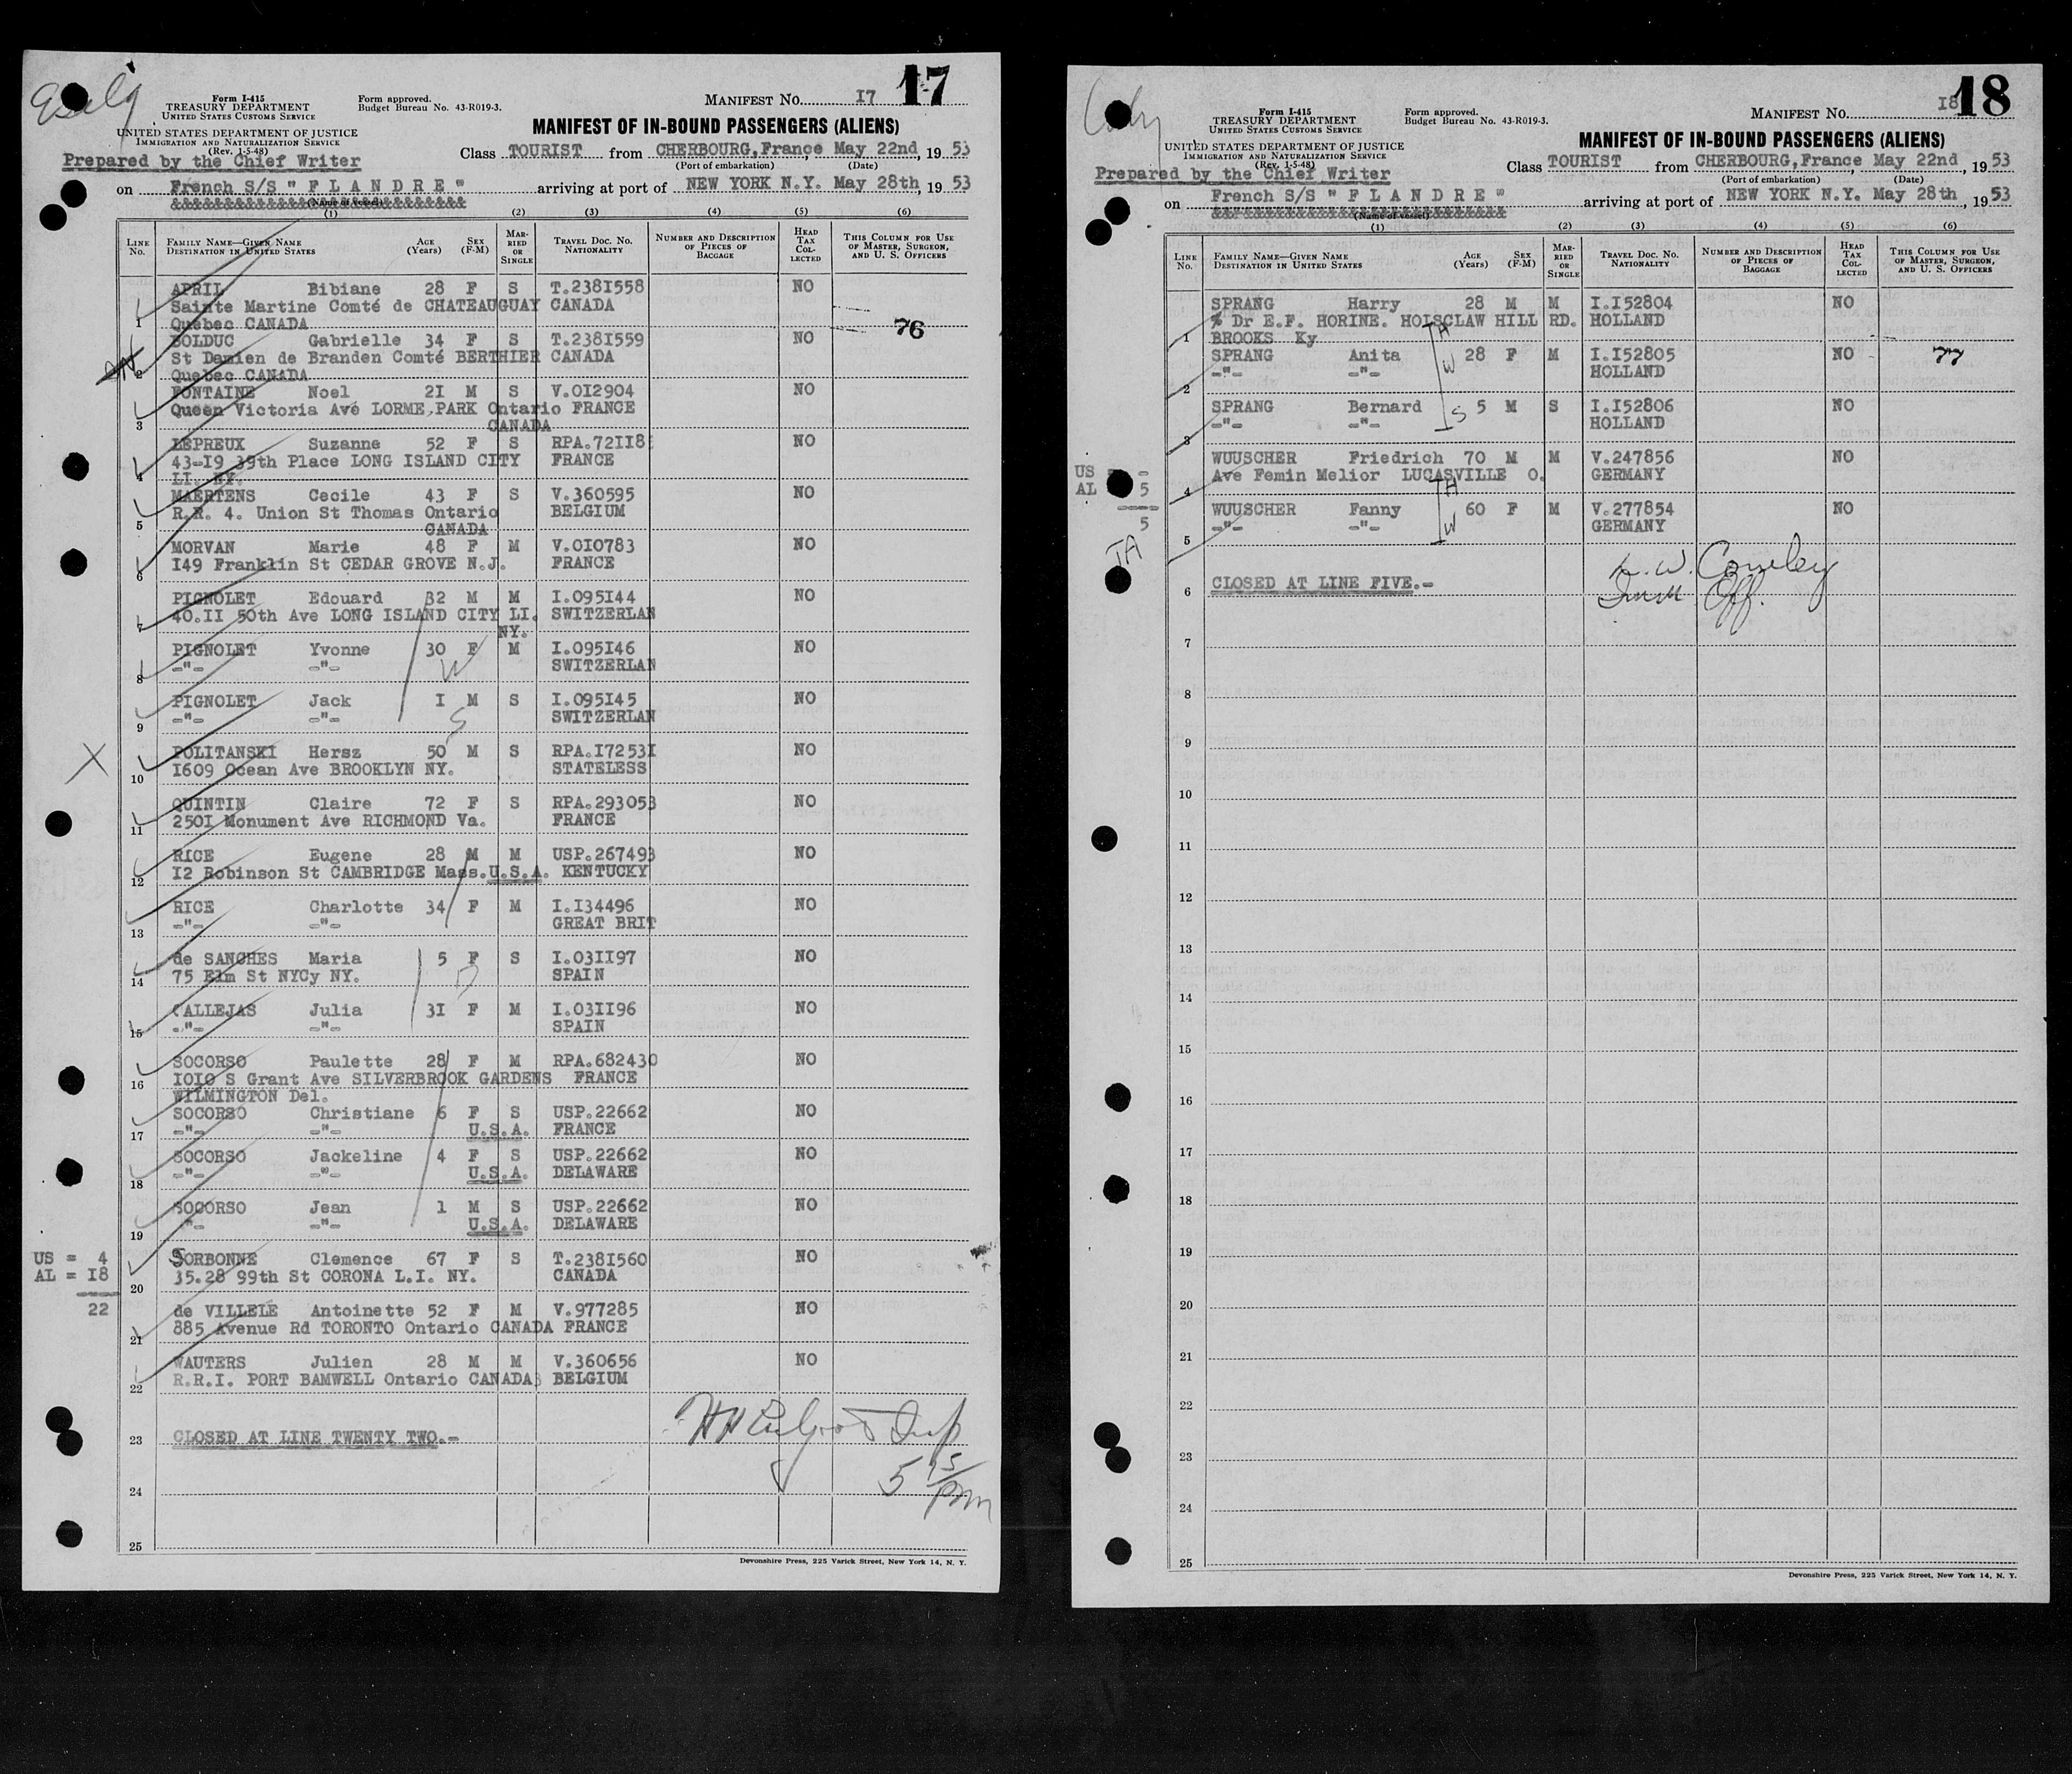 17
Form I-415
TREASURY DEPARTMENT
UNITED STATES CUSTOMS SERVICE
Form approved.
Budget Bureau No. 43-R019-3.
MANIFEST NO. I7
UNITED STATES DEPARTMENT OF JUSTICE
IMMIGRATION AND NATURALIZATION SERVICE
(Rev. 1-5-48)
MANIFEST OF IN-BOUND PASSENGERS (ALIENS)
Prepared by the Chief Writer
Class TOURIST from CHERBOURG,France May 22nd, 19 53
(Port of embarkation) (Date)
on French S/S " F L A N D R E " arriving at port of NEW YORK N.Y. May 28th, 19 53
&&&&&&&&&&&&&&&&&&&&&&&&&&
(Name of vessel)
(1) (2) (3) (4) (5) (6)
LINE NO. FAMILY NAME—GIVEN NAME DESTINATION IN UNITED STATES AGE (Years) SEX (F-M) MARRIED OR SINGLE TRAVEL DOC. NO. NATIONALITY NUMBER AND DESCRIPTION OF PIECES OF BAGGAGE HEAD TAX COLLECTED THIS COLUMN FOR USE OF MASTER, SURGEON, AND U. S. OFFICERS
APRIL Bibiane 28 F S T.238I558 NO
Sainte Martine Comté de CHATEAUGUAY CANADA
1 Quebec CANADA
76
BOLDUC Gabrielle 34 F S T.238I559 NO
St Damien de Branden Comté BERTHIER CANADA
2 Quebec CANADA
FONTAINE Noel 2I M S V.OI2904 NO
Queen Victoria Avé LORME,PARK Ontario FRANCE
3 CANADA
LEPREUX Suzanne 52 F S RPA.72II8 NO
43-I9 39th Place LONG ISLAND CITY FRANCE
4 LI. NY.
MAERTENS Cecile 43 F S V.360595 NO
R.R. 4. Union St Thomas Ontario BELGIUM
5 CANADA
MORVAN Marie 48 F M V.OI0783 NO
6 I49 Franklin St CEDAR GROVE N.J. FRANCE
PIGNOLET Edouard 32 M M I.095I44 NO
7 40.II 50th Ave LONG ISLAND CITY LI. SWITZERLAN
NY.
PIGNOLET Yvonne 30 F M I.095I46 NO
W
8 -"- -"- SWITZERLAN
PIGNOLET Jack I M S I.095I45 NO
S
9 -"- -"- SWITZERLAN
X
POLITANSKI Hersz 50 M S RPA.I7253I NO
10 I609 Ocean Ave BROOKLYN NY. STATELESS
QUINTIN Claire 72 F S RPA.293053 NO
11 250I Monument Ave RICHMOND Va. FRANCE
RICE Eugene 28 M M USP.267493 NO
12 I2 Robinson St CAMBRIDGE Mass.U.S.A. KENTUCKY
RICE Charlotte 34 F M I.I34496 NO
13 -"- -"- GREAT BRIT
de SANCHES Maria 5 F S I.03II97 NO
14 75 Elm St NYCy NY. SPAIN
CALLEJAS Julia 3I F M I.03II96 NO
15 -"- -"- SPAIN
SOCORSO Paulette 28 F M RPA.682430 NO
16 IOIO S Grant Ave SILVERBROOK GARDENS FRANCE
WILMINGTON Del.
SOCORSO Christiane 6 F S USP.22662 NO
17 -"- -"- U.S.A. FRANCE
SOCORSO Jackeline 4 F S USP.22662 NO
18 -"- -"- U.S.A. DELAWARE
SOCORSO Jean 1 M S USP.22662 NO
19 "- -"- U.S.A. DELAWARE
US = 4
AL = I8
22
SORBONNE Clemence 67 F S T.238I560 NO
20 35.28 99th St CORONA L.I. NY. CANADA
de VILLELE Antoinette 52 F M V.977285 NO
21 885 Avenue Rd TORONTO Ontario CANADA FRANCE
WAUTERS Julien 28 M M V.360656 NO
22 R.R.I. PORT BAMWELL Ontario CANADA BELGIUM
23 CLOSED AT LINE TWENTY TWO.-
5 15 pm
24
25
Devonshire Press, 225 Varick Street, New York 14, N. Y.
18
Form I-415
TREASURY DEPARTMENT
UNITED STATES CUSTOMS SERVICE
Form approved.
Budget Bureau No. 43-R019-3.
MANIFEST NO. I8
UNITED STATES DEPARTMENT OF JUSTICE
IMMIGRATION AND NATURALIZATION SERVICE
(Rev. 1-5-48)
MANIFEST OF IN-BOUND PASSENGERS (ALIENS)
Prepared by the Chief Writer
Class TOURIST from CHERBOURG,France May 22nd, 19 53
(Port of embarkation) (Date)
on French S/S " F L A N D R E " arriving at port of NEW YORK N.Y. May 28th, 19 53
&&&&&&&&&&&&&&&&&&&&&&&&&&
(Name of vessel)
(1) (2) (3) (4) (5) (6)
LINE NO. FAMILY NAME—GIVEN NAME DESTINATION IN UNITED STATES AGE (Years) SEX (F-M) MARRIED OR SINGLE TRAVEL DOC. NO. NATIONALITY NUMBER AND DESCRIPTION OF PIECES OF BAGGAGE HEAD TAX COLLECTED THIS COLUMN FOR USE OF MASTER, SURGEON, AND U. S. OFFICERS
SPRANG Harry 28 M M I.I52804 NO
% Dr E.F. HORINE. HOLSCLAW HILL RD. HOLLAND
1 BROOKS Ky H
SPRANG Anita W 28 F M I.I52805 NO 77
2 -"- -"- HOLLAND
SPRANG Bernard S 5 M S I.I52806 NO
3 -"- -"- HOLLAND
US = -
AL = 5
5
WUUSCHER Friedrich 70 M M V.247856 NO
4 Ave Femin Melior LUCASVILLE O. GERMANY
H
WUUSCHER Fanny 60 F M V.277854 NO
5 -"- -"- W GERMANY
6 CLOSED AT LINE FIVE.-
7
8
9
10
11
12
13
14
15
16
17
18
19
20
21
22
23
24
25
Devonshire Press, 225 Varick Street, New York 14, N. Y.